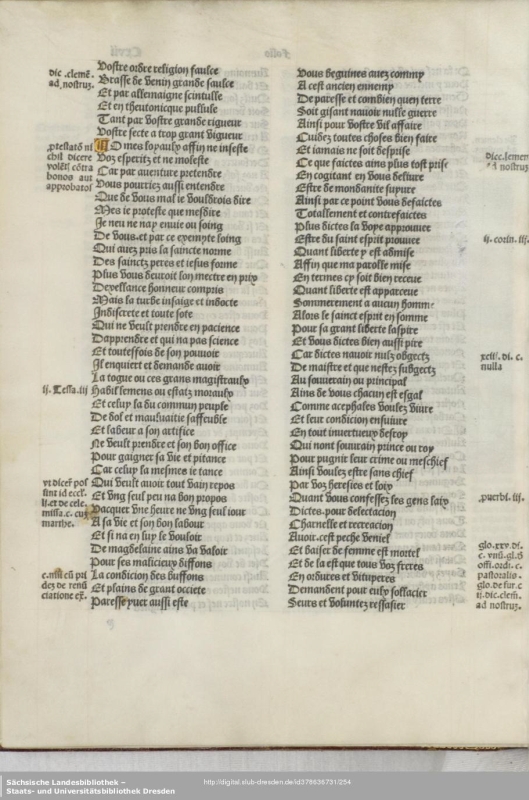 Vostre ordre religion faulce
Brasse de venin grande saulce
Et par allemaigne scintulle
Et en theutonicque pullule
Tant par vostre grande rigueur
Vostre secte a trop grant vigueur
O mes lopaulx affin ne infeste
Voz esperitz et ne moleste
Car par aventure pretendre
Vous pourriez aussi entendre
Que de vous mal ie vouldrois dire
Mes ie proteste que mesdire
Je neu ne nay envie ou soing
De vous.et par ce exemple loing
Qui avez pris la saincte norme
Des sainctz peres et iesus forme
Plus vous devroit lon mectre en prix
Dexellance honneur compris
Mais la turbe insaige et indocte
Indiscrete et toute sote
Qui ne veult prendre en pacience
Dapprendre et qui na pas science
Et toutesfois de son pouvoir
Il enquiert et demande avoir
La togue ou ces grans magistraulx
Habillemens ou estatz moraulx
Et celuy la du commun peuple
De dol et maulvaitie saffeuble
Et labeur a son artifice
Ne veult prendre et son bon office
Pour gaigner sa vie et pitance
Car celuy la mesmes ie tance
Qui veult avoir tout vain repos
Et ung seul peu na bon propos
Vacquer une heure ne ung seul iour
A sa vie et son bon labour
Et si na en luy le vouloir
De magdelaine ains va valoir
Pour ses malicieux diffons
La condicion des buffons
Et plains de grant occiete
Paresseux aussi este
Vous beguines avez commy
A cest ancien ennemy
De paresse et combien quen terre
Soit gisant navoir nulle guerre
Ainsi pour vostre vil affaire
Cuidez toutes choses bien faire
Et iamais ne soit desprise
Ce que faictes ains plus tost prise
En cogitant en vous deluire
Estre de mondanite supure
Ainsi par ce point vous defaictes
Totallement et contrefaictes
Plus dictes la voye approuvee
Estre du saint esprit prouvee
Quant liberte y est admise
Affin que ma parolle mise
En termes cy soit bien receue
Quant liberte est apparceue
Sommerement a aucun homme
Alors le sainct esprit en somme
Pour sa grant liberte laspire
Et vous dictes bien aussi pire
Car dictes navoir nulz obgectz
De maistre et que nestez subgectz
Au souverain ou principal
Ains de vous chacun est esgal
Comme acephales voulez vivre
Et leur condicion ensuivre
En tout invertueux destroy
Qui nont souverain prince ou roy
Pour pugnir leur crime ou meschief
Ainsi voulez estre sans chief
Par voz heresies et loix
Quant vous confessez les gens laix
Dictes.pour delectacion
Charnelle et recreacion
Avoir.cest peche veniel
Et baiser de femme est mortel
Et de la est que tous voz freres
En ordures et vituperes
Demandent pour eulx sollacier
Seurs et voluntez ressasier
dic .clemē.
ad nostruz.
ij. Tessa. iij
marthe.
ij. corin. iij.
xciij. di. c.
nulla
.puerbi. iij.
pastoralis.
ad nostruz.
Sächsische Landesbibliothek –
Staats- und Universitätsbibliothek Dresden
http://digital.slub-dresden.de/id378636731/254